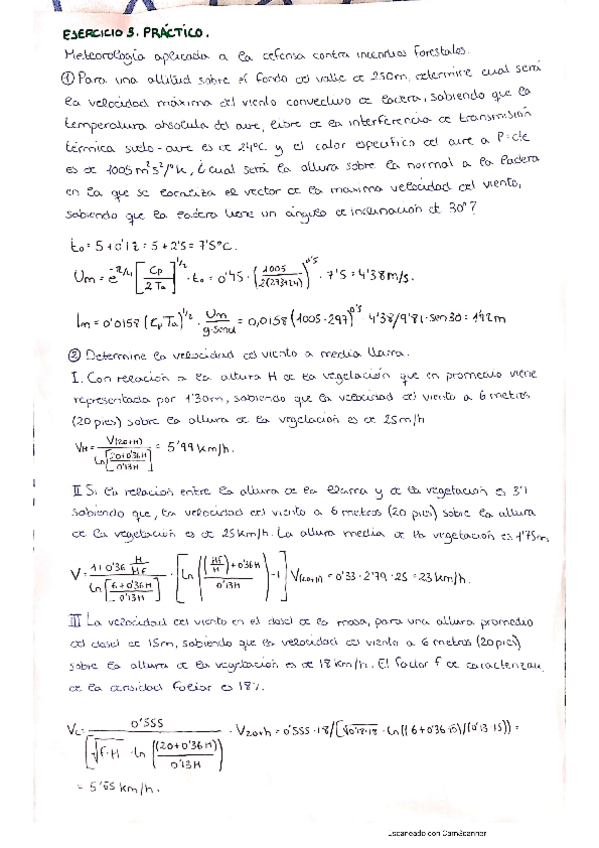 EJERCICIO 3. PRÁCTICO.
Meteorología aplicada a la defensa contra incendios forestales.
① Para una altitud sobre el fondo del valle de 250m, determine cual será
la velocidad máxima del viento convectivo de ladera, sabiendo que la
temperatura absoluta del aire, libre de la interferencia de transmisión
térmica suelo-aire es de 24ºC y el calor especifico del aire a P=cte
es de 1005 m²s²/ºK, ¿cual será la altura sobre la normal a la ladera
en la que se localiza el vector de la maxima velocidad del viento,
sabiendo que la ladera tiene un ángulo de inclinación de 30º?
to = 5 + 0'1 z = 5 + 2'5 = 7'5ºC.
Um = e^-2/4 [Cp / 2 Ta]^1/2 · to = 0'45 · (1005 / 2(273+24))^0'5 · 7'5 = 4'38 m/s.
lm = 0'0158 (Cp Ta)^1/2 · Um / g·senα = 0,0158 (1005·297)^0'5 4'38/9'81·sen30 = 142m
② Determine la velocidad del viento a media llama.
I. Con relacion a la altura H de la vegetación que en promedio viene
representada por 1'30m, sabiendo que la velocidad del viento a 6 metros
(20 pies) sobre la altura de la vegetación es de 25m/h
VH = V(20+H) / ln[20+0'36H / 0'13H] = 5'99 km/h.
II Si la relacion entre la altura de la llama y de la vegetación es 3'1
sabiendo que, la velocidad del viento a 6 metros (20 pies) sobre la altura
de la vegetación es de 25km/h. La altura media de la vegetación es 1'75m
V = 1+0'36 H/HF / ln[6+0'36H / 0'13H] · [ln((HF/H)+0'36H / 0'13H) - 1] V(20+H) = 0'33 · 2'79 · 25 = 23 km/h.
III La velocidad del viento en el dosel de la masa, para una altura promedio
del dosel de 15m, sabiendo que la velocidad del viento a 6 metros (20 pies)
sobre la altura de la vegetación es de 18 km/h. El factor f de caracterizan.
de la densidad foliar es 18%.
Vc = 0'555 / [√f·H · ln((20+0'36H) / 0'13H)] · V20+h = 0'555 · 18/[√0'18·18 · ln((6+0'36·15)/(0'13·15))] =
= 5'65 km/h.
Escaneado con CamScanner